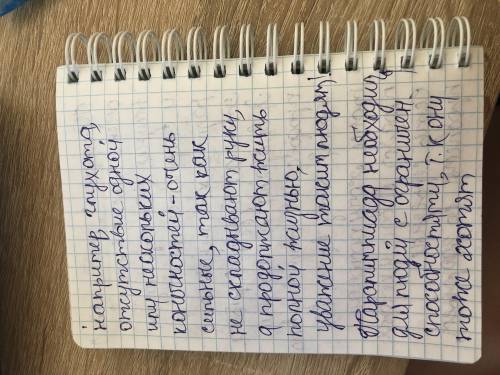 например, глухота,
отсутствие одной
или нескольких
конечностей - очень
сильные, так как
не складывают руки,
а продолжают жить
полной жизнью,
уважение таким людям!
Паралимпиада необходима
для людей с ограничен.
способностями, т.к они
тоже хотят